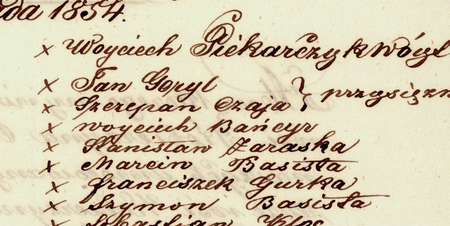 1854.
x Woyciech Piekarczyk wóyt
x Jan Goryl
x Szczepan Czaja } przysiężn
x woyciech Bańcyr
x Stanisław Zaraska
x Marcin Basista
x franciszek Gurka
x Szymon Basista
x Sebastian Kloc